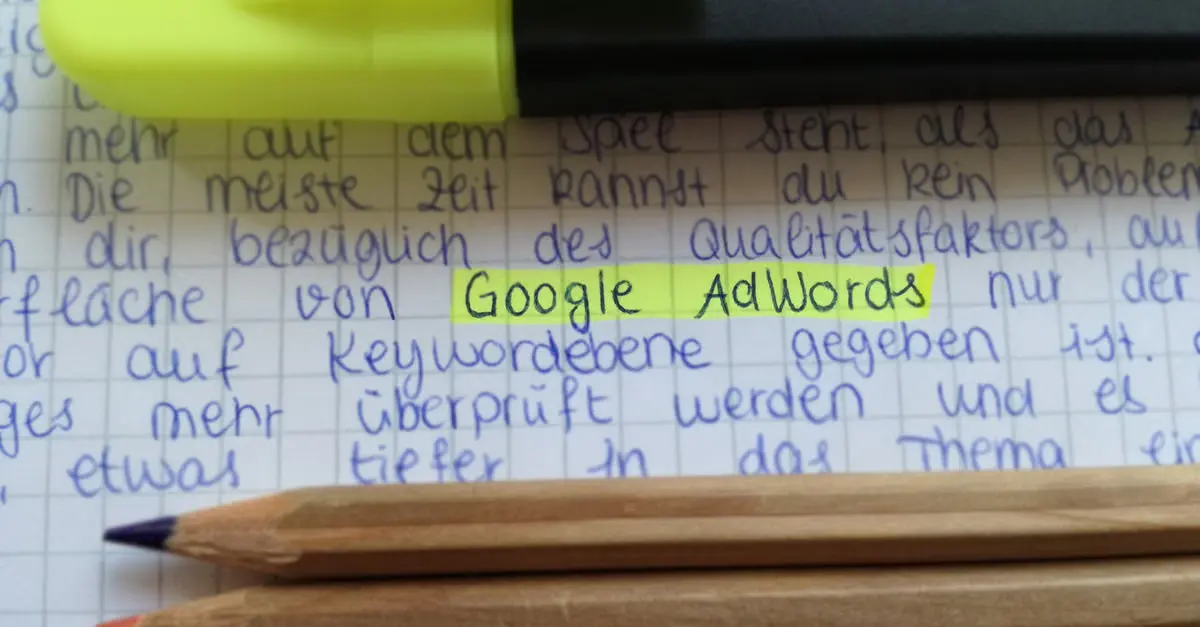 mehr auf dem Spiel steht, als das
Die meiste Zeit kannst du kein Problem
dir, bezüglich des Qualitätsfaktors,
von Google AdWords nur der
auf Keywordebene gegeben ist.
mehr überprüft werden und es
etwas tiefer in das Thema